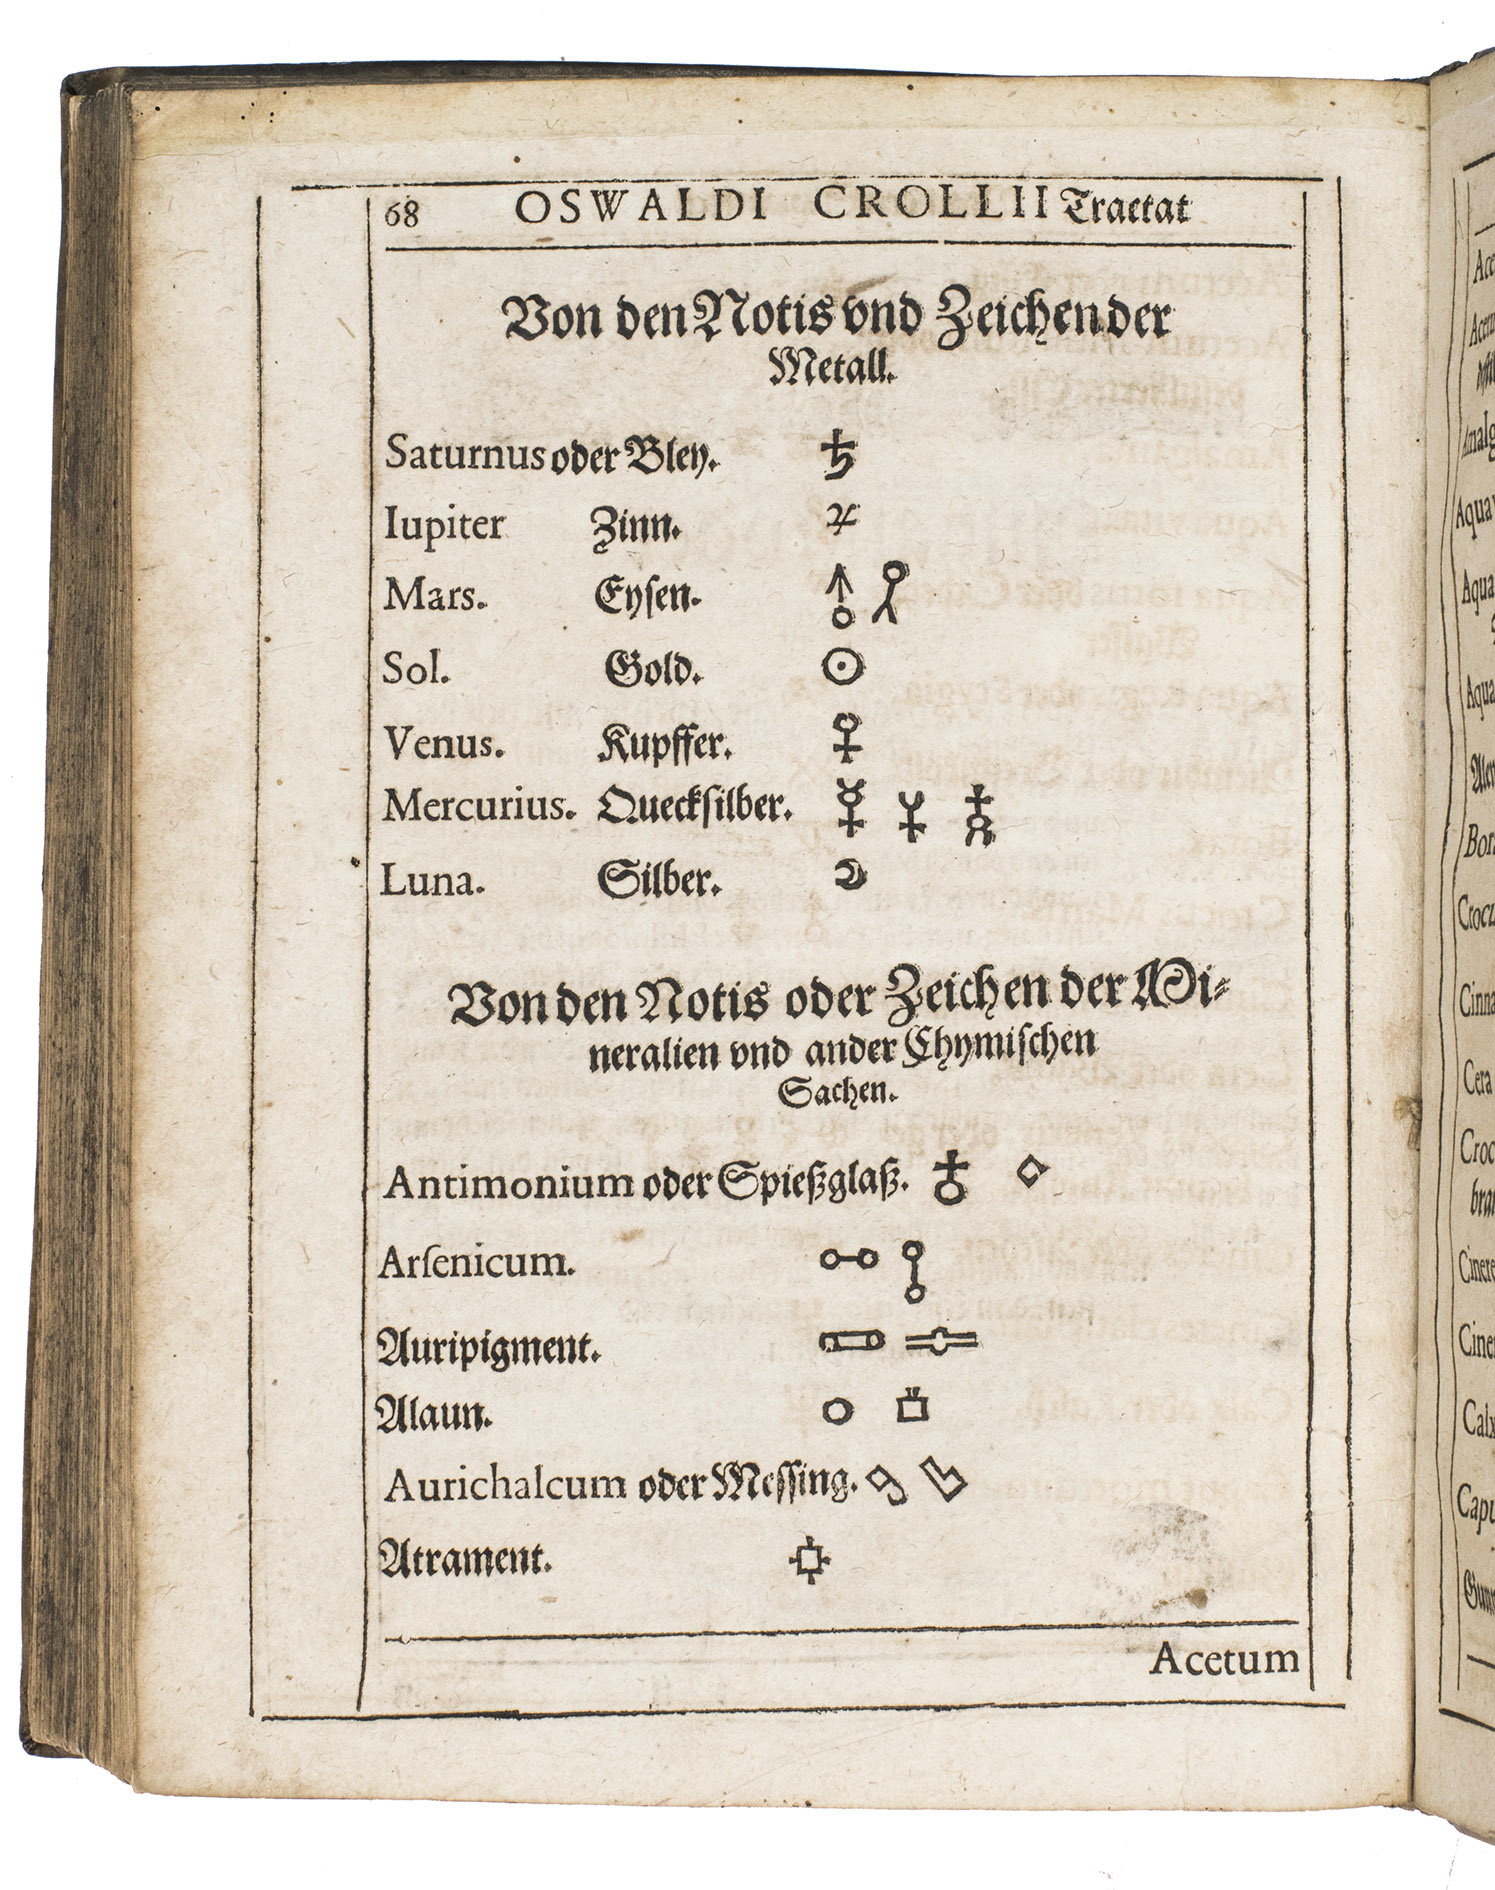 68 OSWALDI CROLLII Tractat
Von den Notis vnd Zeichen der
Metall.
Saturnus oder Bley. ♄
Iupiter Zinn. ♃
Mars. Eysen. ♂
Sol. Gold. ☉
Venus. Kupffer. ♀
Mercurius. Quecksilber. ☿
Luna. Silber. ☽
Von den Notis oder Zeichen der Mi⸗
neralien vnd ander Chymischen
Sachen.
Antimonium oder Spießglaß. ♁
Arſenicum.
Auripigment.
Alaun.
Aurichalcum oder Messing.
Atrament.
Acetum
Aqua
Aqua
Cera
Calx